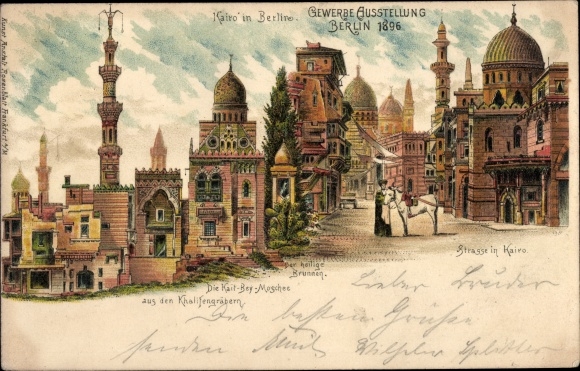 Kairo in Berlin.
GEWERBE AUSSTELLUNG
BERLIN 1896
Kunst Anstalt Rosenblatt Frankfurt a/M
Strasse in Kairo.
Der heilige
Brunnen.
Die Kait-Bey-Moschee
aus den Khalifengräbern.
Lieber Bruder
Die besten Grüße
senden Emil Wilhelm